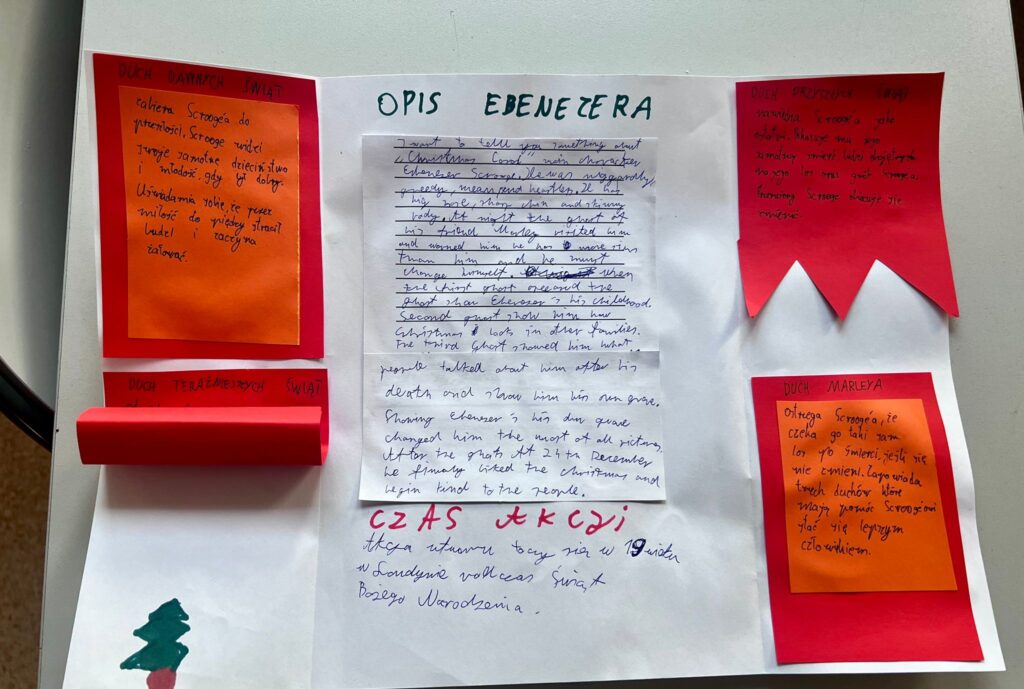 DUCH DAWNYCH ŚWIĄT
zabiera Scrooge'a do
przeszłości. Scrooge widzi
swoje samotne dzieciństwo
i młodość, gdy był dobry.
Uświadamia sobie, że przez
miłość do pieniędzy stracił
ludzi i zaczyna
żałować.
DUCH TERAŹNIEJSZYCH ŚWIĄT
OPIS EBENEZERA
I want to tell you something about
"Christmas Carol" main character
Ebenezer Scrooge. He was niggardly,
greedy, mean, and heartless. He has
big nose, sharp chin and skinny
body. At night the ghost of
his friend Marley visited him
and warned him he has more sins
than him and he must
change himself. When
the first ghost appeared the
ghost show Ebenezer's his childhood.
Second ghost show him how
Christmas look in other families.
The third Ghost showed him what
people talked about him after his
death and show him his own grave.
Showing Ebenezer's his own grave
changed him the most of all pictures.
After the ghosts At 24th December
he finaly liked the christmas and
begin kind to the people.
CZAS AKCJI
Akcja utworu toczy się w 19 wieku
w Londynie podczas Świąt
Bożego Narodzenia.
DUCH PRZYSZŁYCH ŚWIĄT
nawiedza Scrooge'a jako
ostatni. Ukazuje mu jego
samotną śmierć ludzi obojętnych
na jego los oraz grób Scrooge'a.
Scrooge się
zmienić.
DUCH MARLEYA
Ostrzega Scrooge'a, że
czeka go taki sam
los po śmierci, jeśli się
nie zmieni. Zapowiada
trzech duchów które
mają pomóc Scrooge'owi
stać się lepszym
człowiekiem.